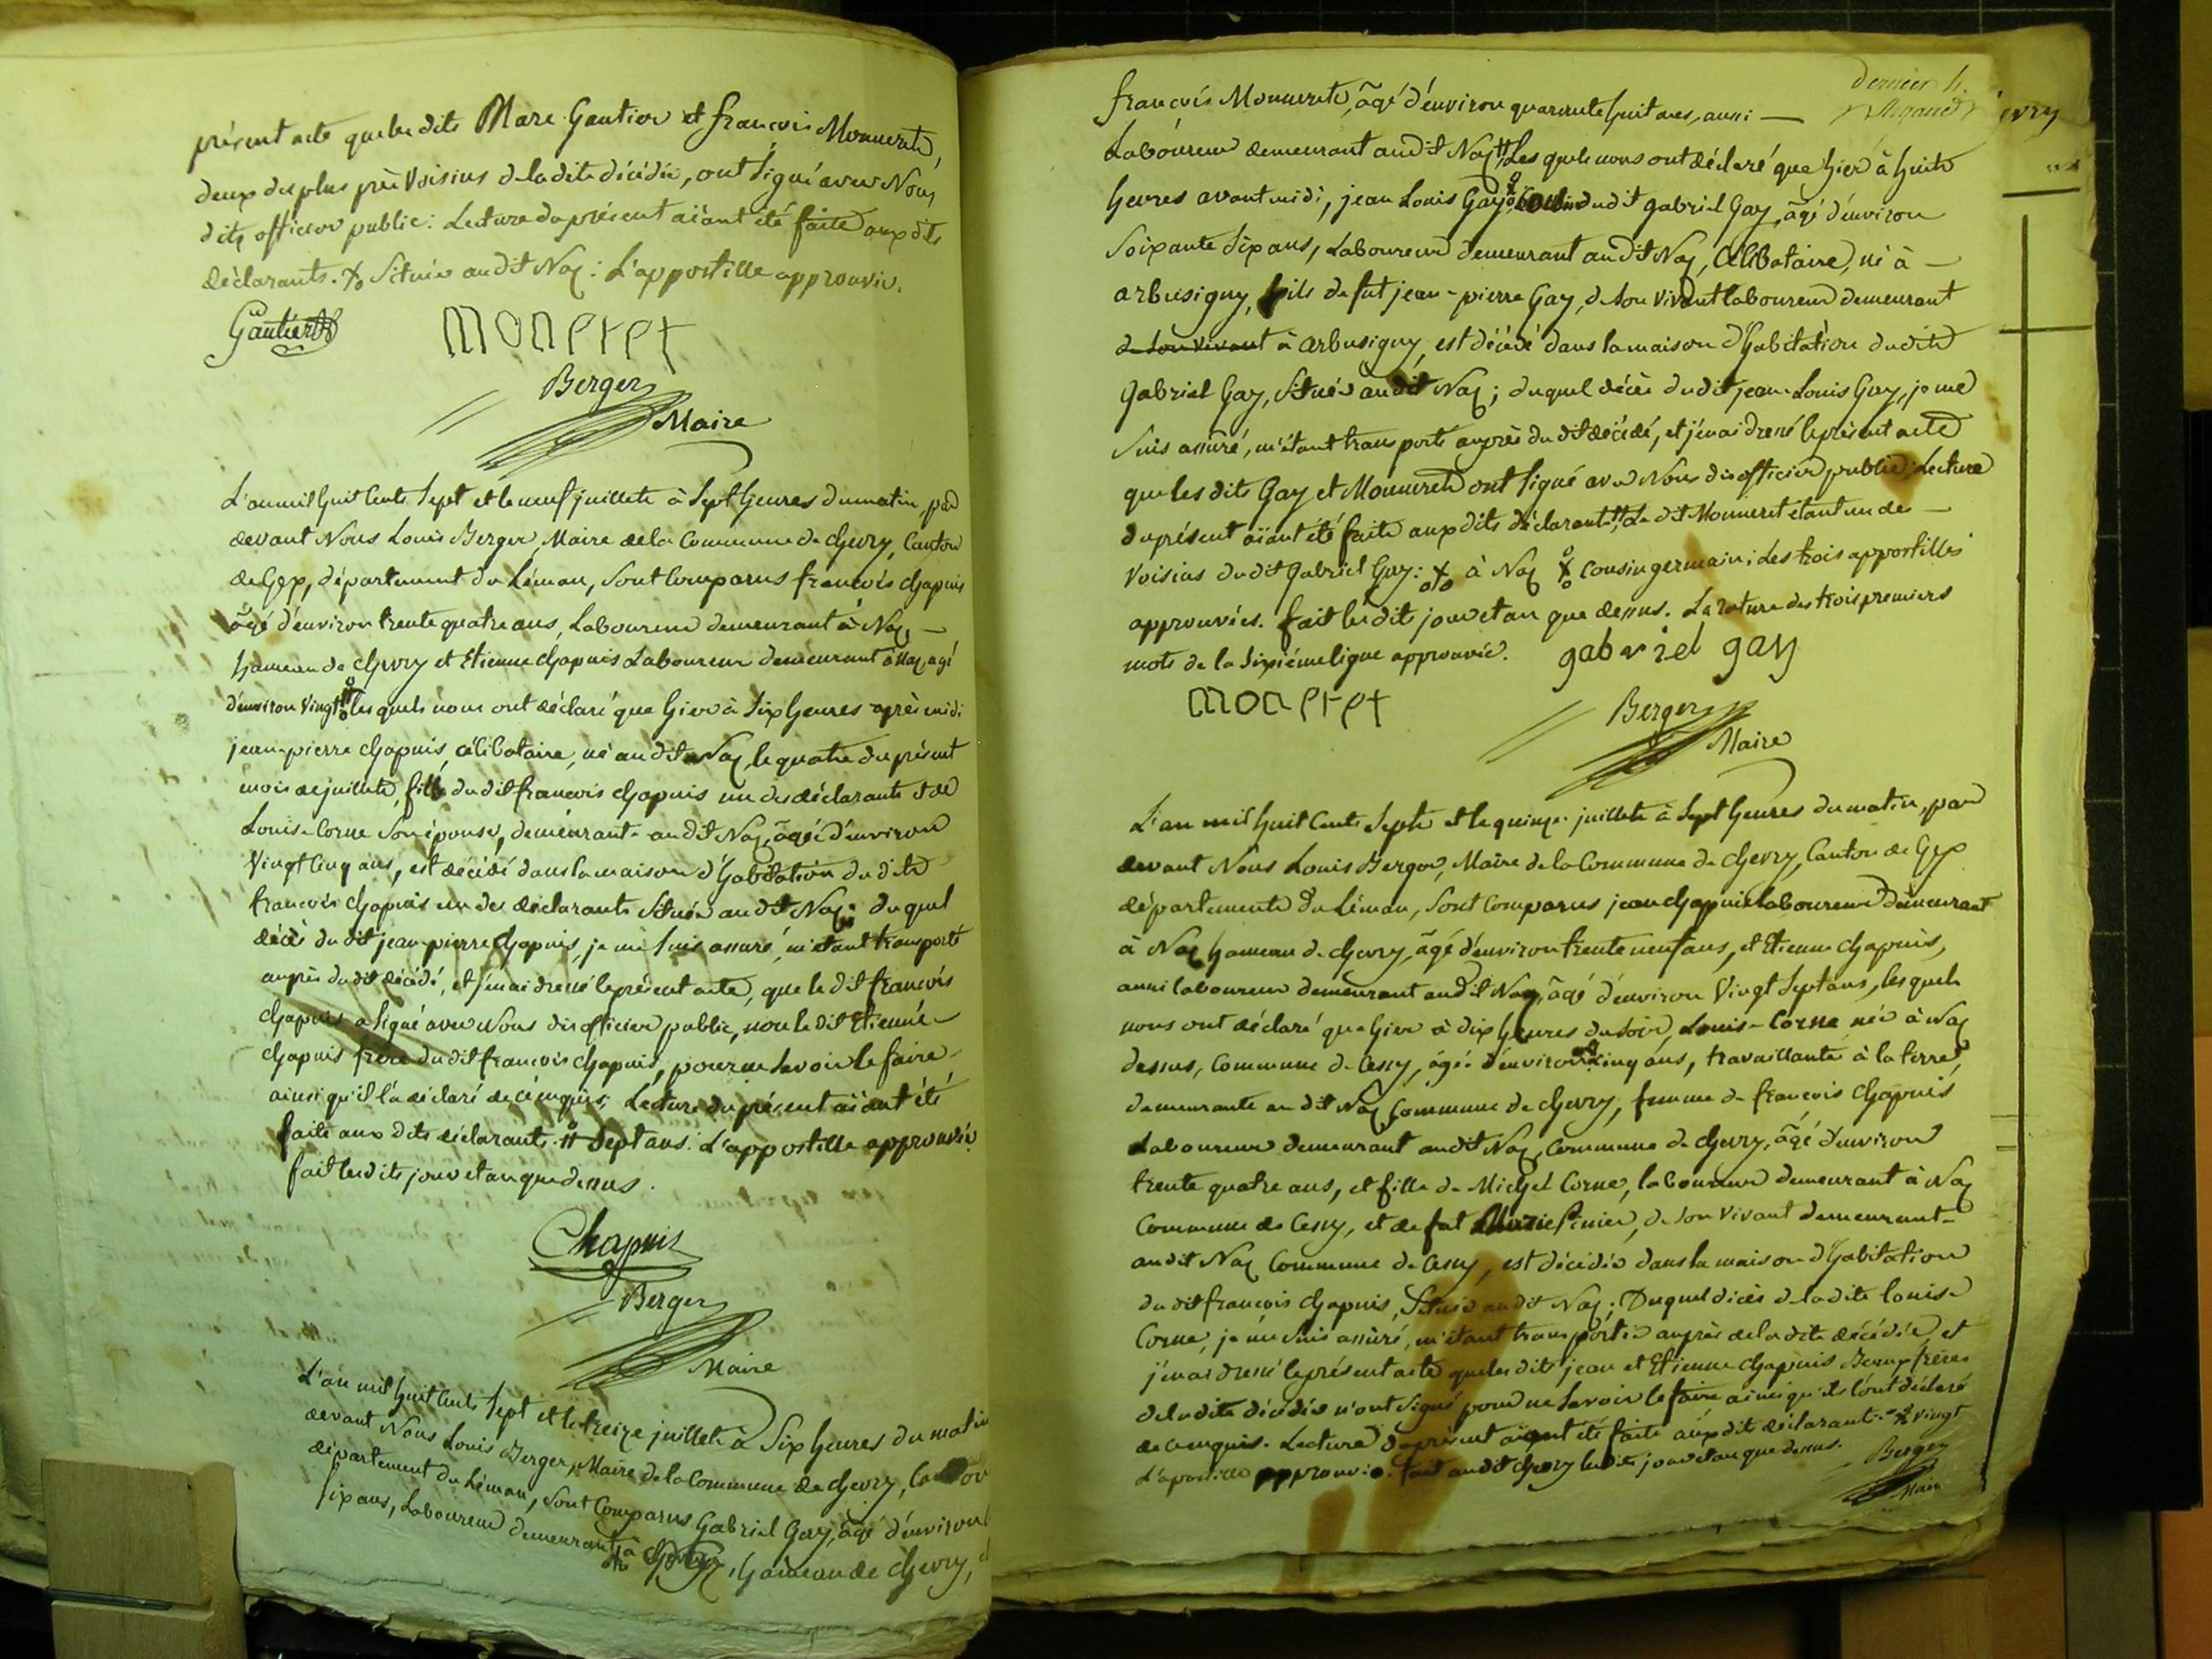 présent acte que les dits Marc Gautier et françois Monneret,
deux des plus près Voisins de la dite décédée, ont signé avec Nous
dits officier public: Lecture du présent aïant été faite aux dits
déclarants. Située au dit Naz: L'appostille approuvée.
Gautier
moneret
Berger
Maire
L'an mil huit Cents Sept et le neuf juillet à Sept heures du matin, par
devant Nous Louis Berger, Maire de la Commune de chevry, Canton
de Gex, département du Léman, Sont Comparus françois chapuis
âgé d'environ trente quatre ans, Laboureur demeurant à Naz,
hameau de chevry et Etienne chapuis Laboureur demeurant à Naz, agé
d'environ vingt les quels nous ont déclaré que hier à Six heures après midi
jean-pierre chapuis, célibataire, né au dit Naz, le quatre du présent
mois de juillet, fils du dit francois chapuis un des déclarants et de
Louise Corne Son épouse, demeurante au dit Naz, âgée d'environ
Vingt Cinq ans, est décédé dans la maison d'habitation du dit
francois chapuis un des déclarants Située au dit Naz: duquel
décès du dit jean-pierre chapuis, je me suis assuré, m'étant transporté
auprès du dit décédé, et j'en ai dressé le présent acte, que le dit francois
chapuis a signé avec Nous dis officier public, non le dit Etienne
chapuis frère du dit francois chapuis, pour ne Savoir le faire
ainsi qu'il l'a déclaré de ce enquis; Lecture du présent aïant été
faite aux dits déclarants. # Sept ans: L'appostille approuvée
fait les dits jour et an que dessus.
Chapuis
Berger
Maire
L'an mil huit Cents Sept et le treize juillet à Six heures du matin
devant Nous Louis Berger, Maire de la Commune de chevry,
département du Léman, Sont Comparus Gabriel Gay, âgé d'environ
six ans, Laboureur demeurant à hameau de chevry,
francois Monneret, âgé d'environ quarante huit ans, aussi
Laboureur demeurant au dit Naz Les quels nous ont déclaré que hier à huit
heures avant midi, jean Louis Gay du dit gabriel Gay, âgé d'environ
Soixante Six ans, Laboureur demeurant au dit Naz, Célibataire, né à
arbusigny, fils de fut jean-pierre Gay, de Son Vivant laboureur demeurant
de son vivant à arbusigny, est décédé dans la maison d'habitation du dit
gabriel Gay, Située au dit Naz; duquel décès du dit jean Louis Gay, je me
suis assuré, m'étant transporté auprès du dit décédé, et j'en ai dressé le présent acte
que les dits Gay et Monneret ont signé avec Nous dis officier public; Lecture
du présent aïant été faite aux dits déclarants, Le dit Monneret étant un de
Voisins du dit gabriel Gay: à Naz cousin germain: Les trois appostilles
approuvées. fait les dits jour et an que dessus. La rature des trois premiers
mots de la sixième ligne approuvée. gabriel gay
moneret
Berger
Maire
L'an mil huit Cents Sept et le quinze juillet à Sept heures du matin, par
devant Nous Louis Berger, Maire de la Commune de chevry, Canton de Gex
département du Léman, Sont Comparus jean chapuis laboureur demeurant
à Naz hameau de chevry, âgé d'environ trente neuf ans, et Etienne chapuis,
aussi laboureur demeurant au dit Naz, âgé d'environ Vingt Sept ans, les quels
nous ont déclaré que hier à dix heures du soir, Louise Corne née à Naz
dessus, commune de Cessy, âgée d'environ cinq ans, travaillante à la terre,
demeurante au dit Naz commune de chevry, femme de francois chapuis
Laboureur demeurant au dit Naz, commune de chevry, âgé d'environ
trente quatre ans, et fille de Michel Corne, laboureur demeurant à Naz
Commune de Cessy, et de fut de Son Vivant demeurant
au dit Naz Commune de Cessy, est décédée dans la maison d'habitation
du dit francois chapuis, Située au dit Naz; Duquel décès de la dite louise
Corne, je me suis assuré, m'étant transporté auprès de la dite décédée, et
j'en ai dressé le présent acte que les dits jean et Etienne chapuis Beaux frères
de la dite décédée n'ont Signé pour ne Savoir le faire ainsi qu'ils l'ont déclaré
de ce enquis. Lecture du présent aïant été faite aux dits déclarants. vingt
L'apostille approuvée. fait au dit chevry les dits jour et an que dessus. Berger
Maire